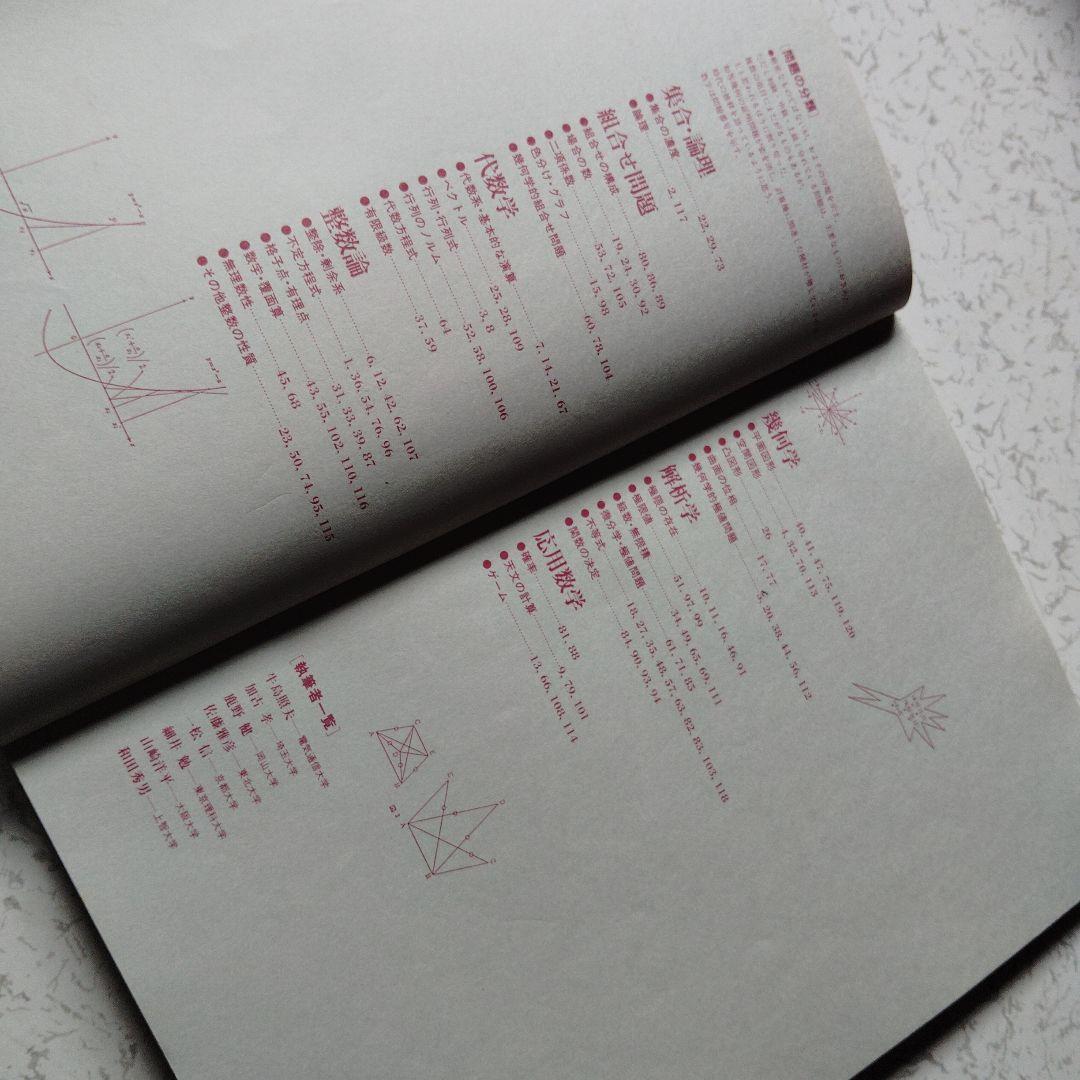 [問題の分類]
集合・論理
●集合の濃度……22, 29, 73
●論理……2, 117
組合せ問題
●組合せの構成……80, 86, 89
●場合の数……19, 24, 30, 92
●二項係数……53, 72, 105
●色分け・グラフ……15, 98
●幾何学的組合せ問題……60, 78, 104
代数学
●代数系・基本的な演算……7, 14, 21, 67
●ベクトル……3, 8
●行列・行列式……25, 28, 109
●行列のノルム……64
●代数方程式……52, 58, 100, 106
●有限級数……37, 59
整数論
●整除・剰余系……6, 12, 42, 62, 107
●不定方程式……1, 36, 54, 76, 96
●格子点・有理点……31, 33, 39, 87
●数字・覆面算……43, 55, 102, 110, 116
●無理数性……45, 68
●その他整数の性質……23, 50, 74, 95, 115
幾何学
●平面図形……40, 41, 47, 75, 119, 120
●空間図形……4, 32, 70, 113
●凸図形……17, 77
●曲面の位相……26
●幾何学的極値問題……5, 20, 38, 44, 56, 112
解析学
●極限の存在……10, 11, 16, 46, 91
●極限値……51, 97, 99
●級数・無限積……34, 49, 65, 69, 111
●微分学・極値問題……61, 71, 85
●不等式……18, 27, 35, 48, 57, 63, 82, 83, 103, 118
●関数の決定……84, 90, 93, 94
応用数学
●確率……81, 88
●天文の計算……9, 79, 101
●ゲーム……13, 66, 108, 114
[執筆者一覧]
牛島照夫——電気通信大学
加古 孝——埼玉大学
鹿野 健——岡山大学
佐藤雅彦——東北大学
一松 信——京都大学
細井 勉——東京理科大学
山崎洋平——大阪大学
和田秀男——上智大学